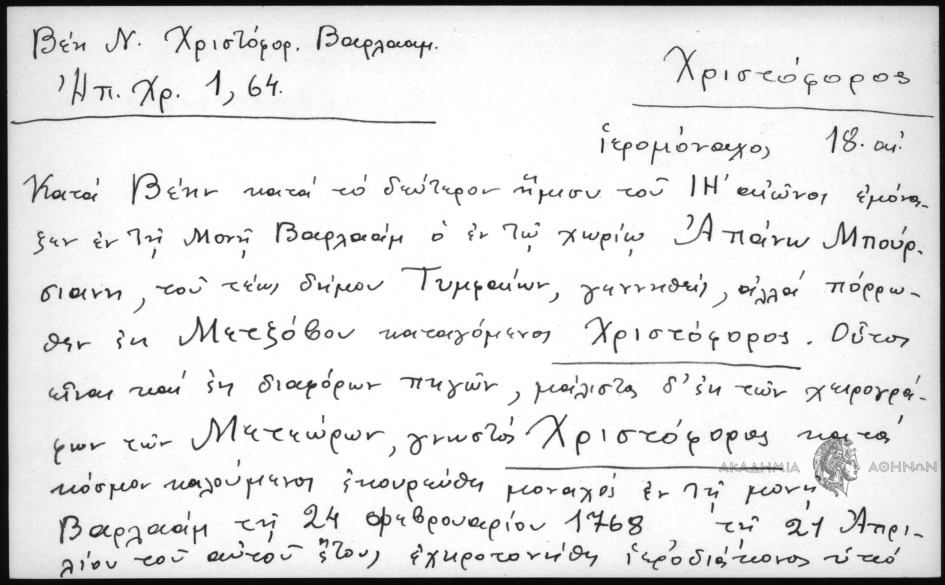 Βέη Ν. Χριστόφορ. Βαρλαάμ.
Ἠπ. Χρ. 1, 64.
Χριστόφορος
ἱερομόναχος 18. αἰ.
Κατά Βέην κατά τό δεύτερον ἥμισυ τοῦ ΙΗ' αἰῶνος ἐμόνα-
ζεν ἐν τῇ Μονῇ Βαρλαάμ ὁ ἐν τῷ χωρίῳ Ἀπάνω Μπούρ-
σιανη, τοῦ τέως δήμου Τυμφαίων, γεννηθείς, ἀλλά πόρρω-
θεν ἐκ Μετζόβου καταγόμενος Χριστόφορος. Οὗτος
εἶναι καί ἐκ διαφόρων πηγῶν, μάλιστα δ' ἐκ τῶν χειρογρά-
φων τῶν Μετεώρων, γνωστός Χριστόφορος κατά
κόσμον καλούμενος ἐκουρεύθη μοναχός ἐν τῇ μονῇ
Βαρλαάμ τῇ 24 Φεβρουαρίου 1768 τῇ 21 Ἀπρι-
λίου τοῦ αὐτοῦ ἔτους ἐχειροτονήθη ἱεροδιάκονος ὑπό
ΑΚΑΔΗΜΙΑ ΑΘΗΝΩΝ